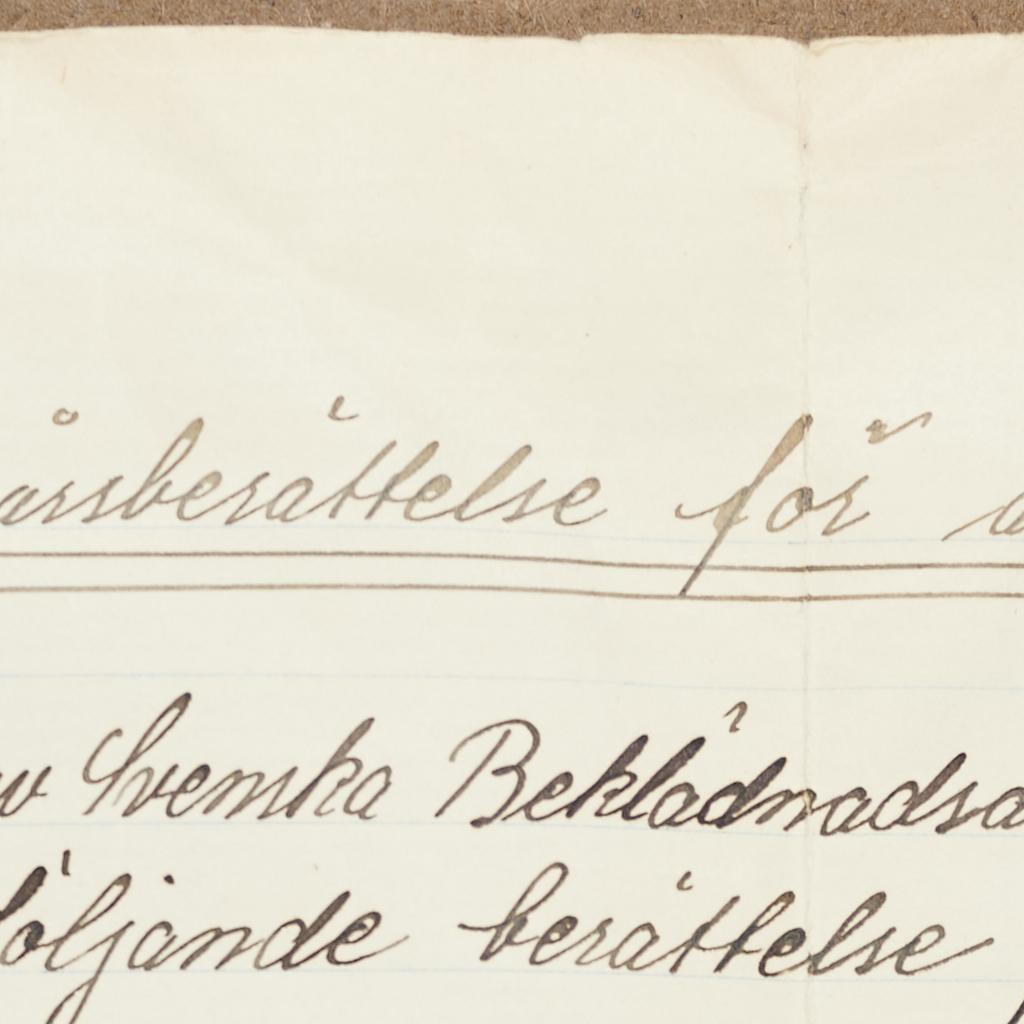 årsberättelse för
av Svenska Beklädnadsa
följande berättelse